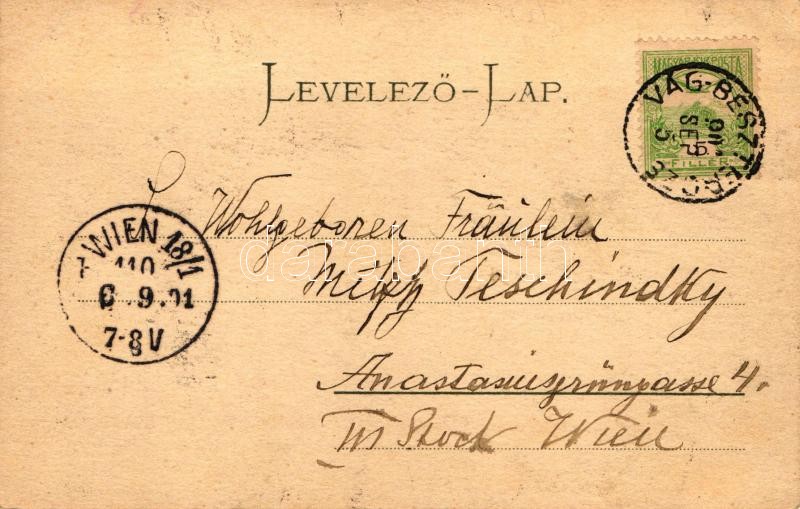 LEVELEZŐ-LAP.
MAGYAR KIR. POSTA
FILLÉR
VÁG-BESZTERCZE
SEP
5
WIEN 18/1
7
110
6 . 9 . 01
7-8 V
Wohlgeboren Fräulein
Mitzi Teschindky
Anastasiusgrüngasse 4.
III Stock Wien
darabanth